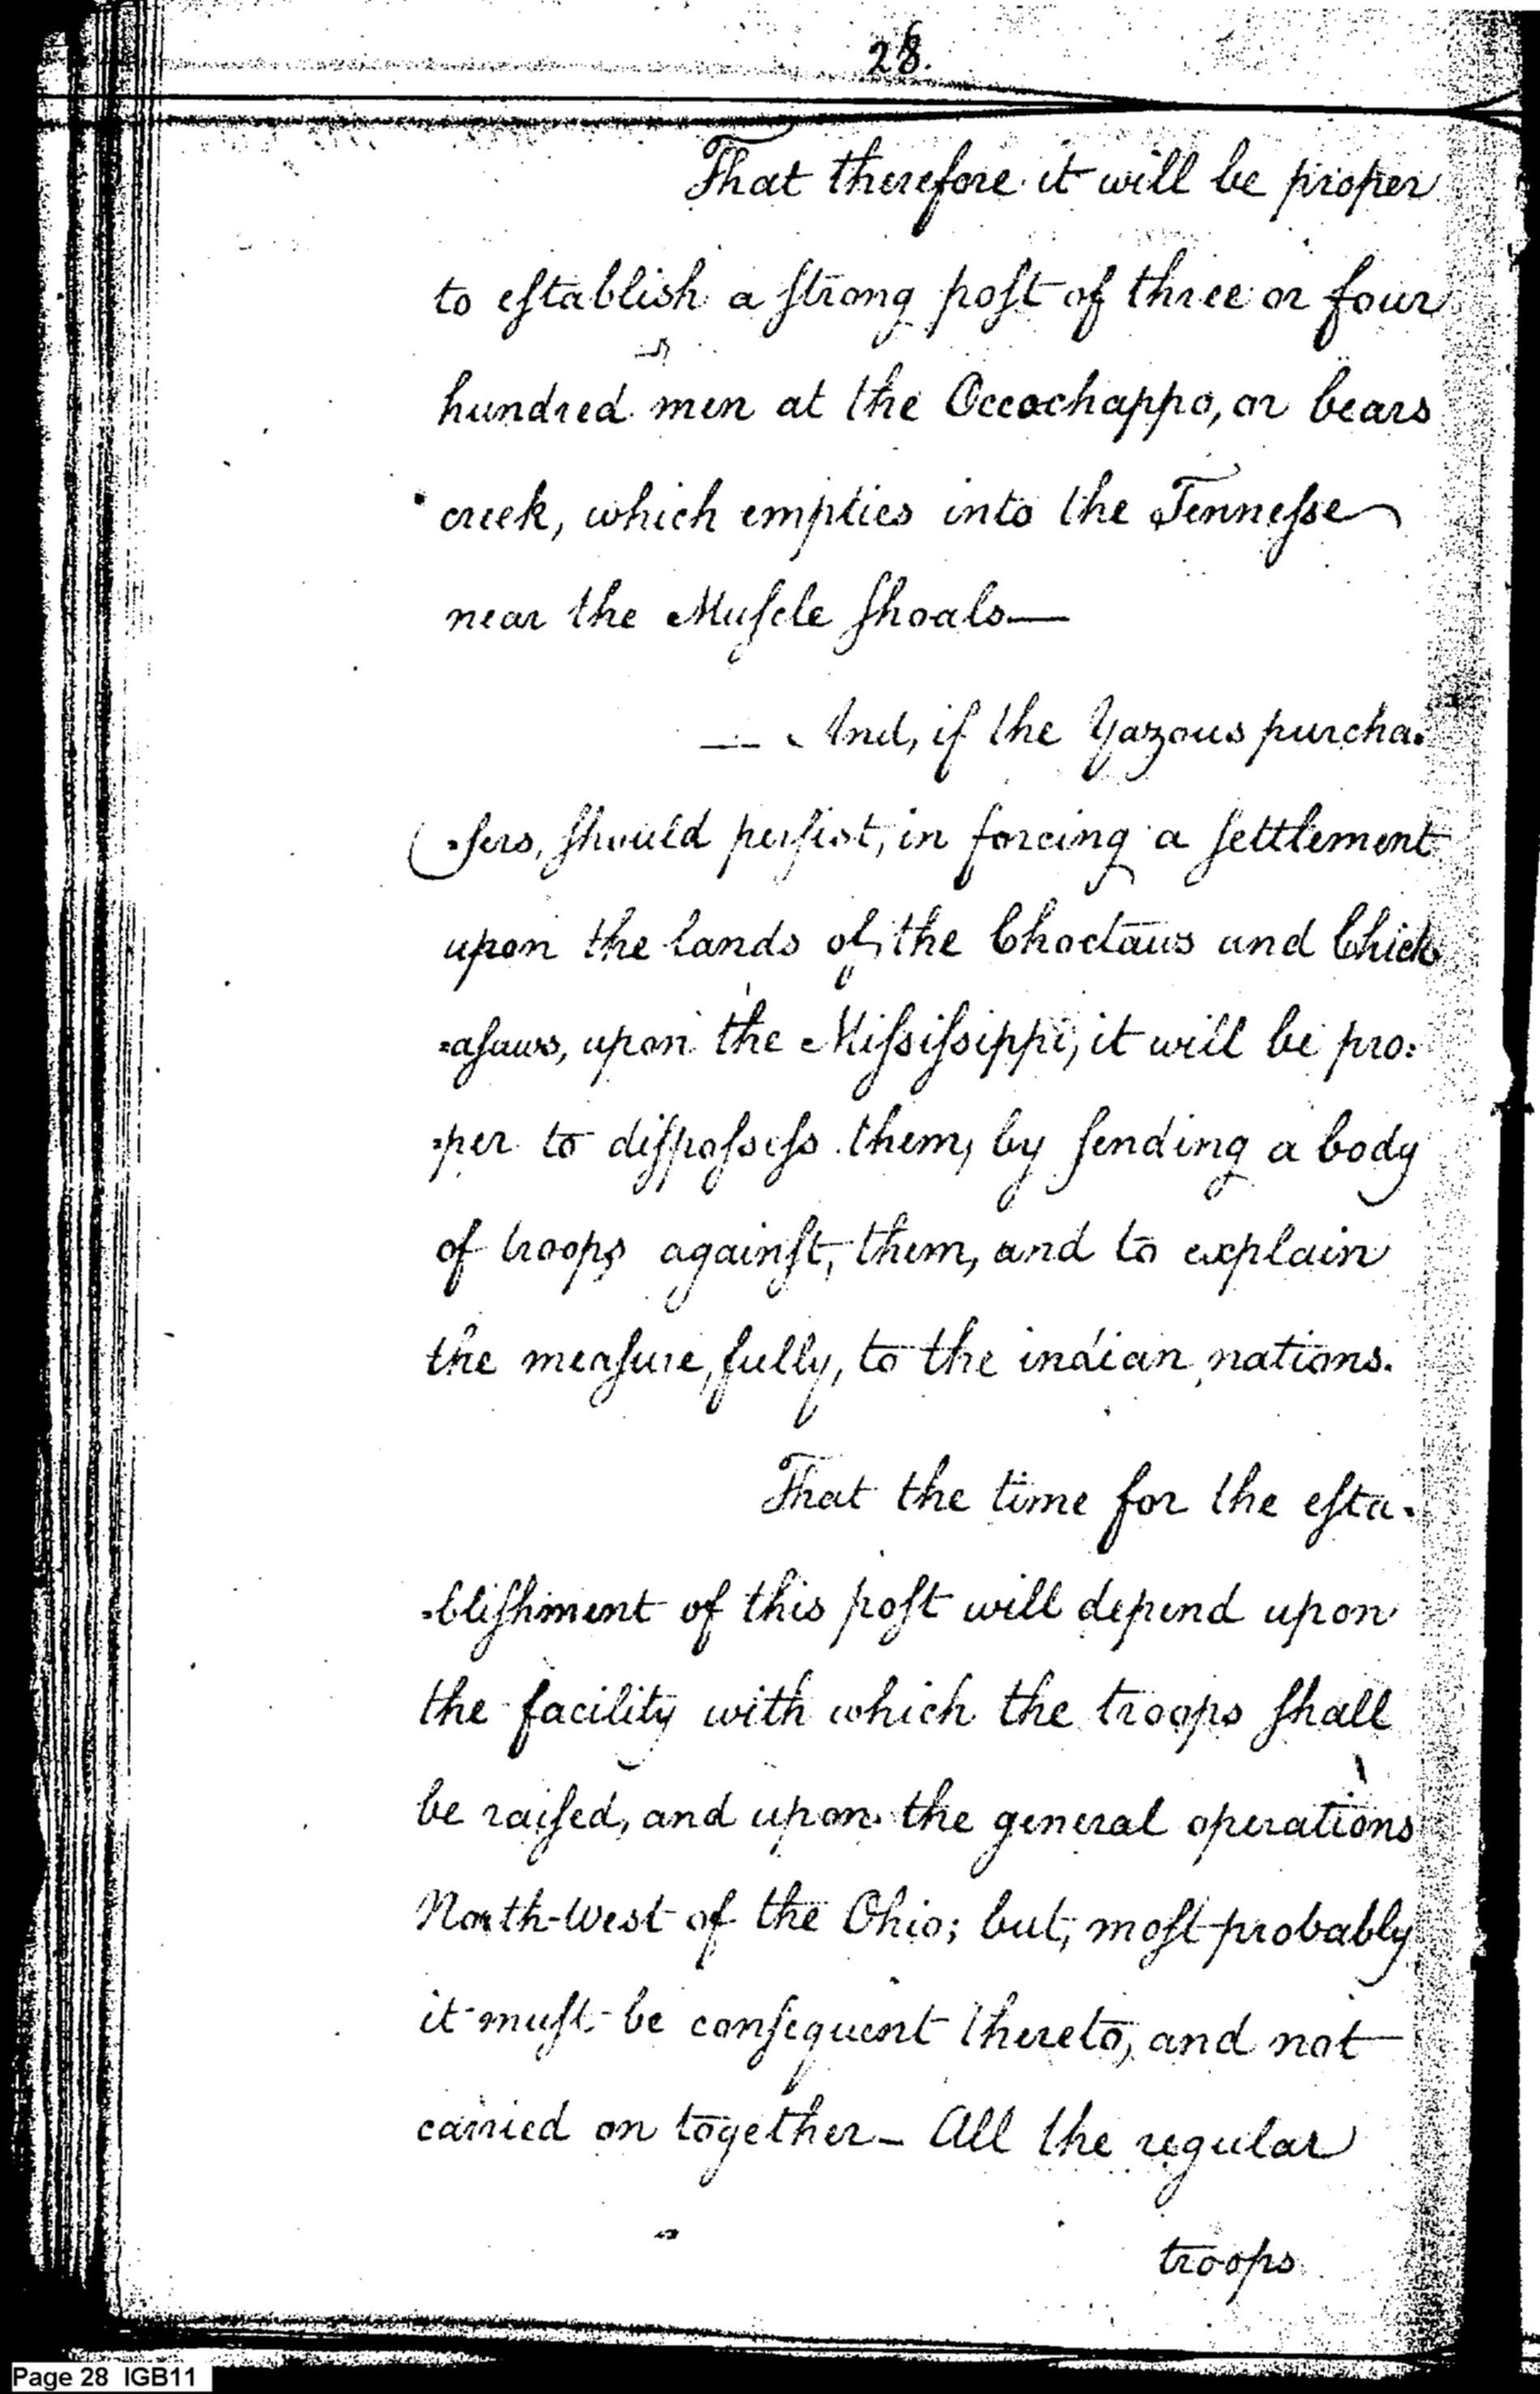 28.
That therefore it will be proper
to eſtablish a ſtrong poſt of three or four
hundred men at the Occochappo, or bears
creek, which empties into the Tenneſse
near the Muſcle ſhoals—
— And, if the Yazous purcha-
-ſers, ſhould perſist, in forcing a ſettlement
upon the lands of the Choctaws and Chick
=aſaws, upon the Miſsiſsippi, it will be pro:
=per to diſpoſseſs them, by ſending a body
of troops againſt, them, and to explain
the meaſure, fully, to the indian nations.
That the time for the eſta-
-bliſhment of this poſt will depend upon
the facility with which the troops ſhall
be raiſed, and upon the general operations
North-West of the Ohio; but, moſt probably
it muſt be conſequent thereto, and not
carried on together— All the regular
troops
Page 28 IGB11